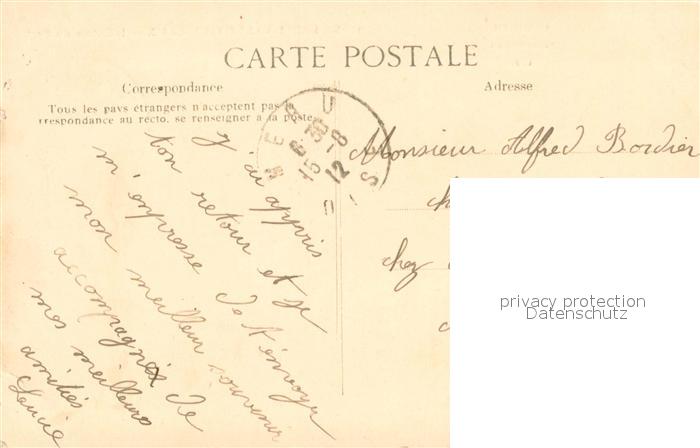 CARTE POSTALE
Correspondance
Adresse
Tous les pays étrangers n'acceptent pas la
rrespondance au recto, se renseigner à la poste
MERU
15 30
8 - 8
12
Monsieur Alfred Bordier
ch
chez
J'ai appris
ton retour et je
m'empresse de t'envoyer
mon meilleur souvenir
accompagnée de
mes meilleures
amitiés
Lucie
privacy protection
Datenschutz